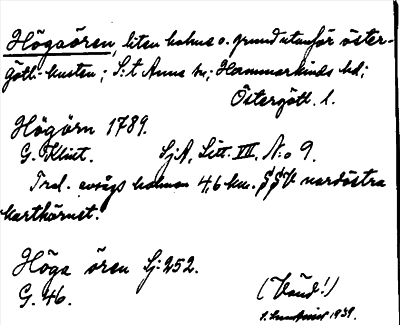 Högaören, liten holme o. grund utanför öster-
götl. kusten; S:t Anna sn; Hammarkinds hd;
Östergötl. l.
Högörn 1789.
G. Klint. SjA, Litt. VII, No 9.
Trol. avsågs holmen 4,6 km. SSV nordöstra
karthörnet.
Höga ören Sj. 252.
G. 46. (Vänd!)
1939.